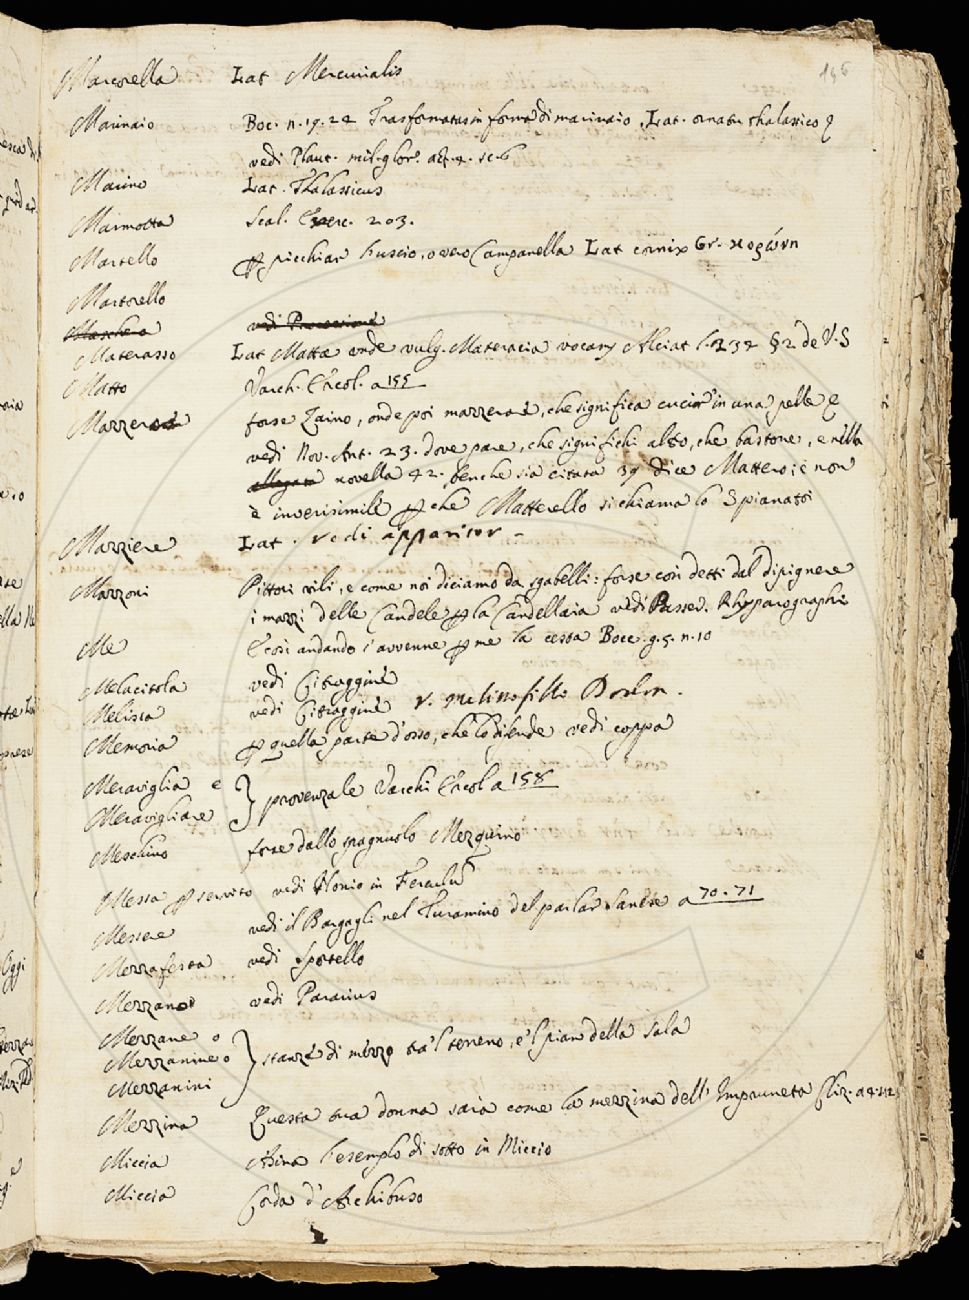 196
Marcorella Lat Mercurialis
Marinaio Boc. n. 19. 24 Trasformatasi in forma di marinaio. Lat. ornatu thalassico
vedi Plaut. mil. glor. act. 4. sc. 6
Marino Lat. Thalassicus
Marmotta Scal. Exerc. 203.
Martello picchiar l'uscio, overo Campanella Lat cornix Gr. κορώνη
Martorello
Maschera vedi
Materasso Lat Matta unde vulg. Materacia vocant Alciat l. 234 § 2 de V. S
Matto Varch. Ercol. a 155
Mazzera forse Zaino, onde poi mazzerare, che significa cucire in una pelle e
vedi Nov. Ant. 23. dove pare, che significhi altro, che bastone, e nella
allegata novella 42. benche sia citata 39 dice Mattero; e non
è inverisimile che Matterello si chiama lo Spianatoi
Mazziere Lat. vedi apparitor
Mazzoni Pittori vili, e come noi diciamo da sgabelli: forse così detti dal dipignere
i mazzi delle Candele la Candellaia vedi Passer. Rhyparographi
Me E così andando s'avvenne me la cessa Bocc. g. 5. n. 10
Melacitola vedi Citraggine
Melissa vedi Citraggine v.
Memoria quella parte d'osso, che lo difende vedi coppa
Meraviglia e
Meravigliare } provenzale Varchi Ercol a 158
Meschino forse dallo spagnuolo Mezquino
Messa servito vedi Nonio in
Messere vedi il Bargagli nel Turamino del parlar Sanese a 70. 71
Mezzafesta vedi Sportello
Mezzano vedi Pararius
Mezzane o
Mezzanine o } stanze di mezzo tra'l terreno, e'l pian della sala
Mezzanini
Mezzina Questa tua donna saria come la mezzina dell' Impruneta
Miccia Asina l'esemplo di sotto in Miccio
Miccia Corda d'Archibuso